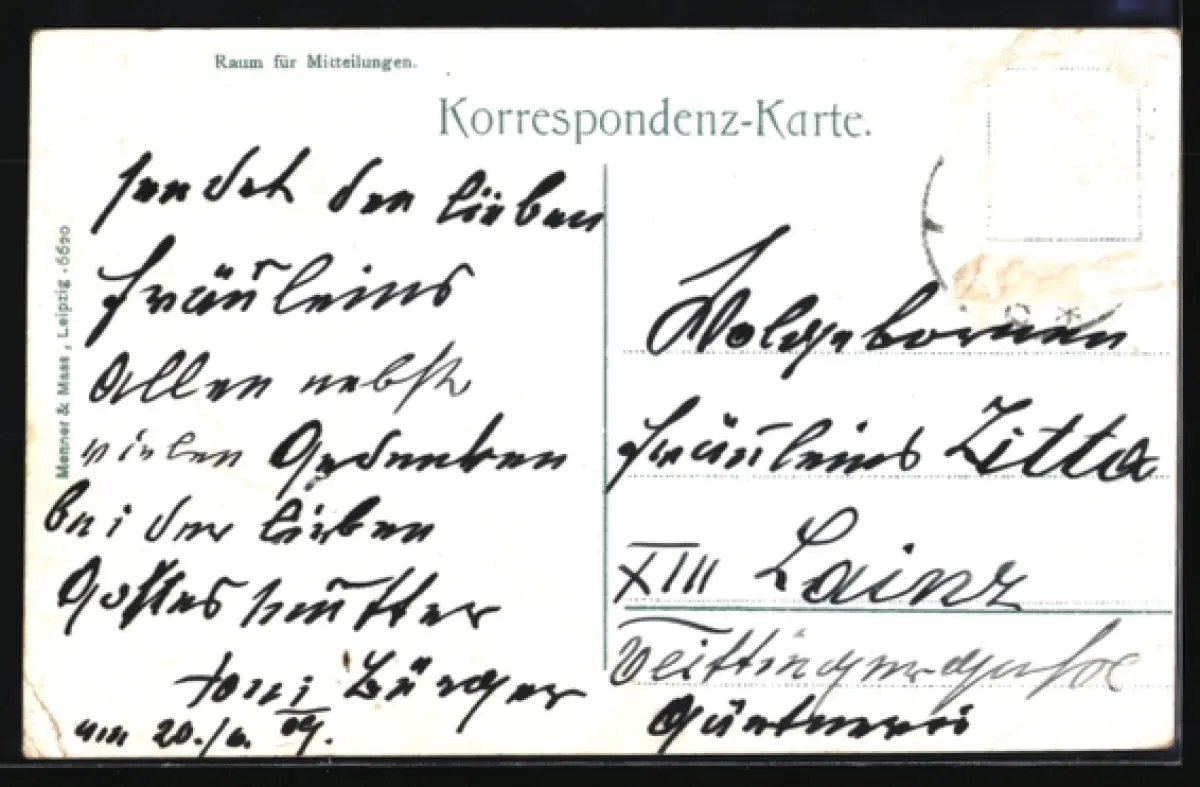 Raum für Mitteilungen.
Korrespondenz-Karte.
Menner & Maas, Leipzig. 6620
sendet den lieben
Fräuleins
Allen nebst
vielen Gedenken
bei der lieben
Gottesmutter
Toni Bürger
am 20./6. 09.
Wolgebornen
Fräuleins Zitta
XIII Lainz
Veittingergasse
Gärtnerei